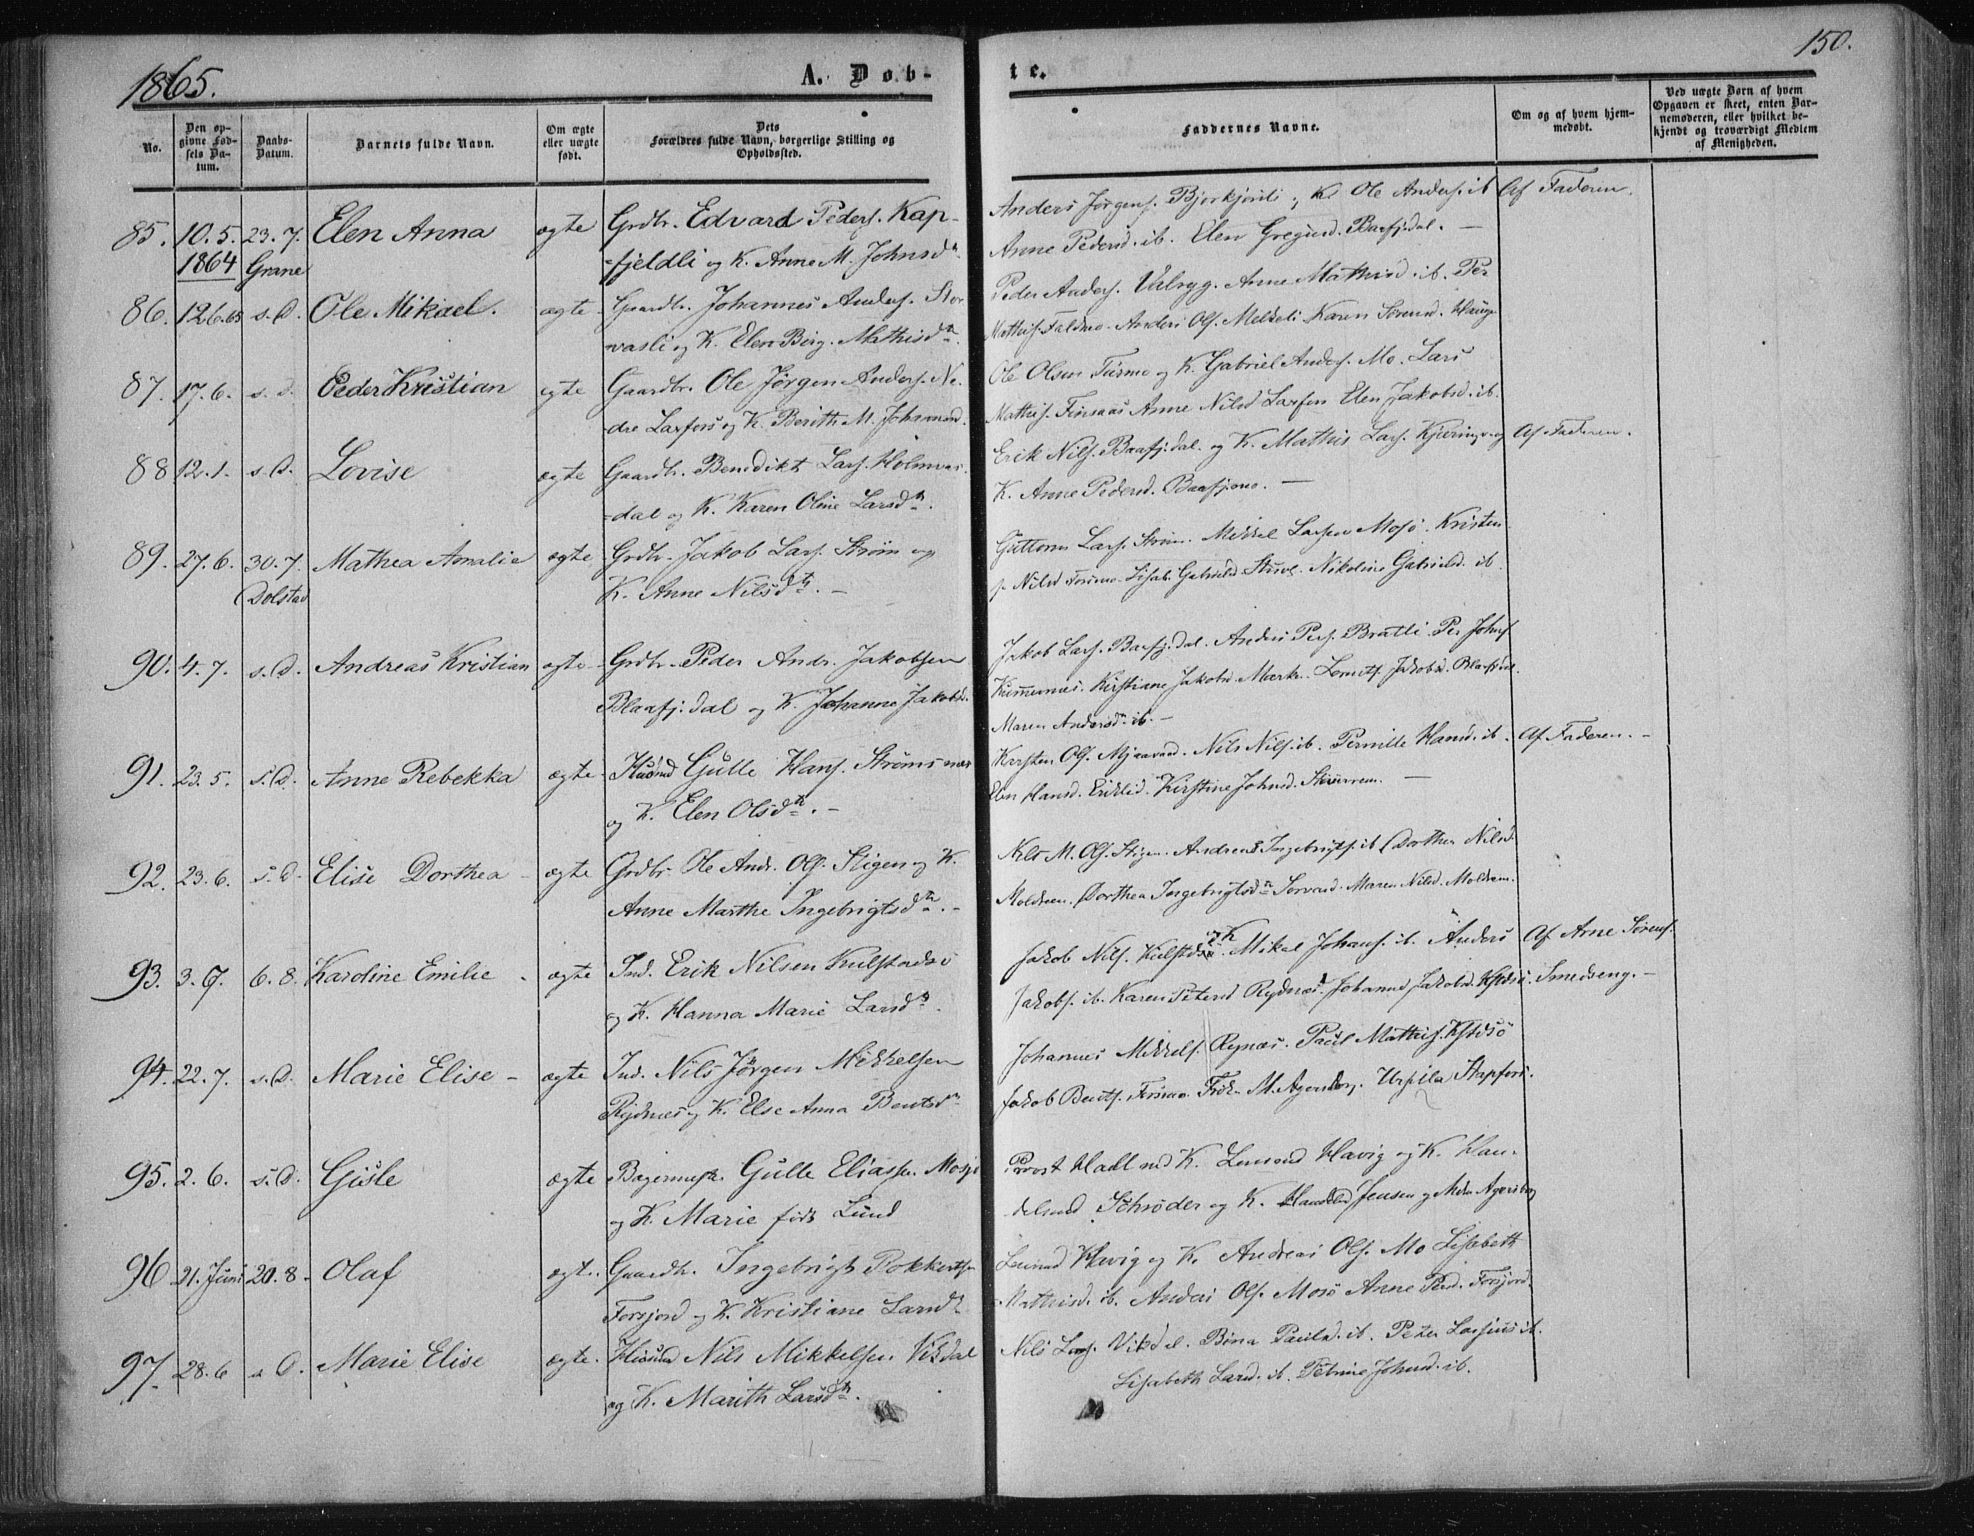 1865.
A. Døb-
te.
150.
No.
Den op-
givne Fød-
sels Da-
tum.
Daabs-
Datum.
Barnets fulde Navn.
Om ægte
eller uægte
født.
Dets
Forældres fulde Navn, borgerlige Stilling og
Opholdssted.
Faddernes Navne.
Om og af hvem hjem-
medøbt.
Ved uægte Børn af hvem
Opgaven er skeet, enten Bar-
nemoderen, eller hvilket be-
kjendt og troværdigt Medlem
af Menigheden.
85. 10.5. 23.7. Elen Anna ægte Grdbr. Edvard Peders. Kap-
1864 Grane -fjeldli og K. Anne M. Johnsd.
Anders Jørgens. Bjorkjonli, K. Ole Anders. ib Af Faderen.
Anne Pedersd. ib. Elen Gregusd. Baafj.dal. —
86. 12.6.65 s.D. Ole Mikael. ægte Gaardbr. Johannes Anders. Stor
vasli og K. Elen Berg. Mathisdtr.
Peder Anders. Anne Mathisd. ib. Per
Mathis. Anders Ols. Karen Sørensd.
87. 17.6. s.D. Peder Kristian egte Gaardbr. Ole Jørgen Anders. Ne-
dre Laxfors og K. Berith M. Johansd.
Ole Olsen Turmo og K. Gabriel Anders. Mo. Lars
Mathis. Finsaas Anne Nilsd Laxfors Elen Jakobsd. ib.
88 12.1. s.D. Lovise ægte Gaardbr. Benedikt Lars. Holmvas-
=dal og K. Karen Oline Larsdtr.
Erik Nils. Baafj.dal. og K. Mathis Lars. og Af Faderen.
K. Anne Pedersd. Baafjmo. —
89. 27.6. 30.7. Mathea Amalia ægte Grdbr. Jakob Lars. Strøm og
Dolstad K. Anne Nilsdtr. —
Guttorm Lars. Strøm. Mikkel Larsen Mosø. Kristen
Nilsd Forsmo. Lisab. Gabrielsd Nikoline Gabrielsd. ib.
90. 4.7. s.D. Andreas Kristian ægte Grdbr. Peder Andr. Jakobsen
Blaafj.dal og K. Johanna Jakobsd.
Jakob Lars. Baafj.dal. Anders Pers. Bratli. Per Johns
Kirstiane Jakobsd. Jakobsd. Blaafjdal.
Maren Andersd. ib. —
91. 23.5. s.D. Anne Rebekka ægte Husmd Gulle Hans. Strømsnæs
og K. Elen Olsdtr. —
Karsten Ols. Mjaavand. Nils Nils. ib. Pernille Hansd. ib. Af Faderen. —
Elen Hansd. Kirstine Johnsd. —
92. 23.6. s.D. Elise Dorthea ægte Grdbr. Ole Andr. Ols. Stigen og K.
Anne Marthe Ingebrigtsdtr. —
Nils M. Ols. Stigen. Andreas Ingebrigts. ib Dorthea Nilsd.
Moldrem. Dorthea Ingebrigtsdtr Maren Nilsd. Moldrem.
93. 3.7. 6.8. Karoline Emilie ægte Ind. Erik Nilsen Kulstadsø
og K. Hanna Marie Larsdtr.
Jakob Nils. Kulstdsø og K Mikal Johans. ib. Anders Af Arne Sørens.
Jakobs. ib. Karen Petersd Rydnæs. Johanna Jakobsd. Smedseng. —
94. 22.7. s.D. Marie Elise — ægte Ind. Nils Jørgen Mikkelsen
Rydnæs og K. Else Anna Bentsd
Johannes Mikkels. Rynæs. Paul Mathis. Kstdsø
Jakob Bents. Forsmo. M. Agersborg. Ursila Stapfors.
95. 2.6. s.D. Gisle ægte Bagermest. Gulle Eliass. Mosj.
og K. Marie født Lund
Provst Hall med K. Lensmd Havig og K. Han-
delsmd Schrøder og K. Handelsbd Jensen og Mdm Agersborg
96 21. Juni 20.8. Olaf ægte. Gaardb. Ingebrigt Pokkertsen
Forsjord og K. Kristiane Larsd.
Lensmd Havig og K. Andreas Ols. Mo Lisabeth
Mathisd. ib. Anders Ols. Mosø Anne Persd. Forsjord.
97. 28.6 s.D. Marie Elise ægte. Husmd Nils Mikkelsen Vikdal
og K. Marith Larsdtr.
Nils Lars. Vikdal. Paulsd. ib. Peter ib.
Lisabeth Larsd. ib. Petrine Johnsd. ib.